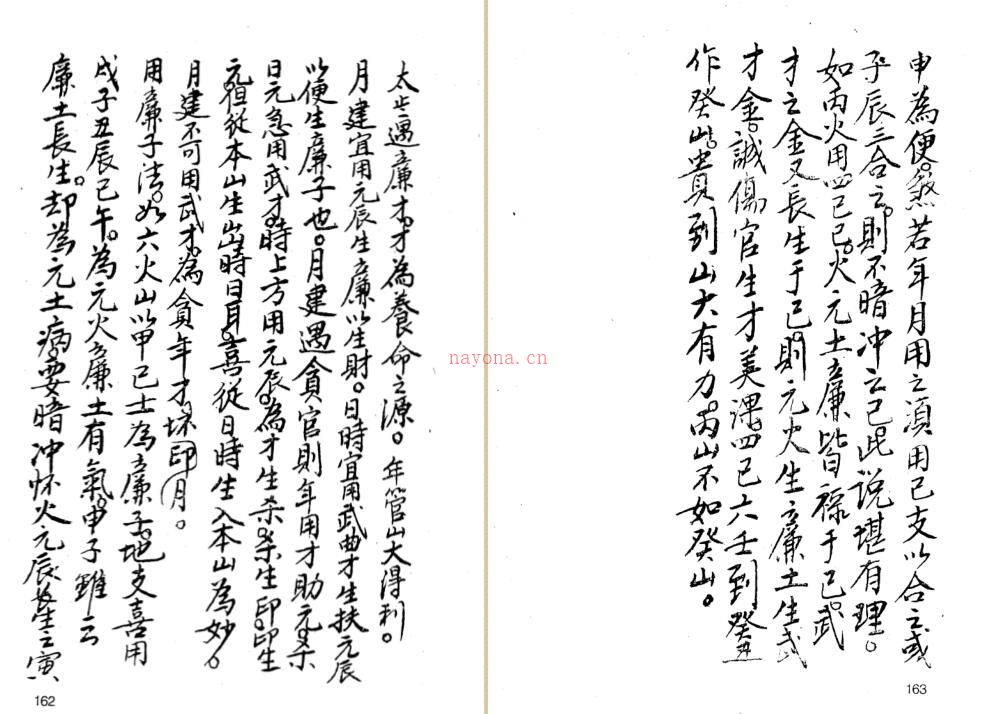 太歲遇廉才。才為養命之源。年管山大得利。
月建宜用元辰生廉以生財。日時宜用武曲才生扶元辰
以便生廉子也。月建遇貪官則年用才助元。杀
日元急用武才。時上方用元辰。為才生杀。杀生印。印生
元。但從本山生出時日耳。喜從日時生入本山為妙。
月建不可用武才。為貪年才。壞印月。
用廉子法。如六火山以甲己士為廉子。地支喜用
戌子丑辰巳午。為元火廉土有氣。申子雖云
廉土長生。却為元土病。要暗冲怀火元辰長生之寅
162
申為便。煞若年月用之須用巳支以合之或
子辰三合之。則不暗冲之巳。此説堪有理。
如丙火用四己巳。火元土廉皆祿于巳。武
才之金又長生于巳。則元火生廉土生武
才金。誠傷官生才美課。四巳六壬到癸丑
作癸山。貴到山大有力。丙山不如癸山。
163
nayona.cn